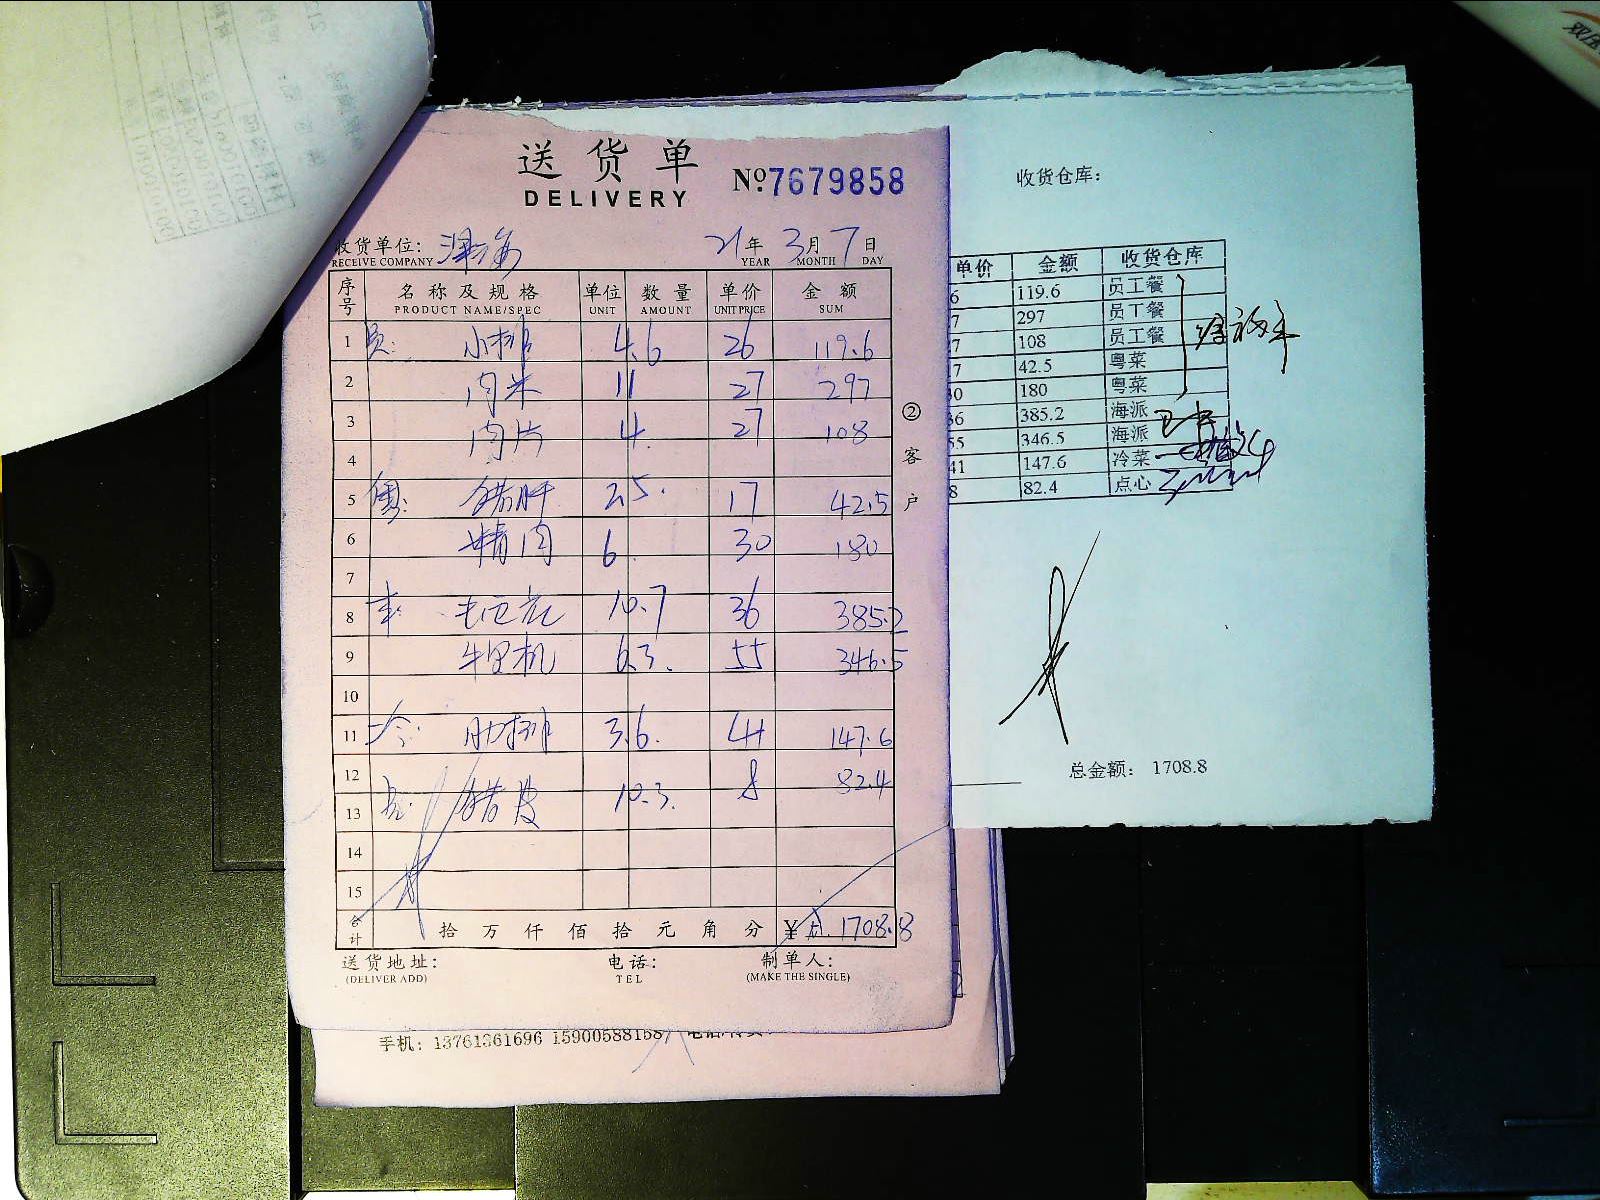 送货单
DELIVERY
№7679858
收货单位:
RECEIVE COMPANY
21年 3月 7日
YEAR MONTH DAY
序号 名称及规格 单位 数量 单价 金额
PRODUCT NAME/SPEC UNIT AMOUNT UNIT PRICE SUM
1 员: 小排 4.6 26 119.6
2 肉米 11 27 297
3 肉片 4. 27 108
4
5 猪肝 2.5. 17 42.5
6 精肉 6 30 180
7
8 10.7 36 385.2
9 牛里机 6.3. 55 346.5
10
11 冷: 肋排 3.6. 41 147.6
12
13 点: 猪皮 10.3. 8 82.4
14
15
合计 拾 万 仟 佰 拾 元 角 分 ¥ 1708.8
②客户
送货地址:
(DELIVER ADD)
电话:
TEL
制单人:
(MAKE THE SINGLE)
手机: 13761361696 15900588158
收货仓库:
单价 金额 收货仓库
6 119.6 员工餐
7 297 员工餐
7 108 员工餐
7 42.5 粤菜
30 180 粤菜
36 385.2 海派
55 346.5 海派
41 147.6 冷菜
8 82.4 点心
总金额: 1708.8